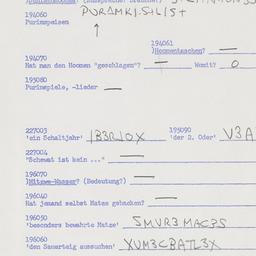 194060
Purimspeisen PURAMKI.S+L/S+
194061
)Hoomentaschen? —
194070
Hat man den Hoomen "geschlagen"? — Womit? O
195080
Purimspiele, -lieder —
227003 195090
'ein Schaltjahr' IB3RIOX 'der 2. Oder' V3A
227004
"Schwat is kein ..." —
196070
)Mitzwe-Wasser? (Bedeutung?) —
196040
Hat jemand selbst Matse gebacken? —
196050
'besonders bewahrte Matse' SMVR3 MAC3S
196060
'den Sauerteig aussuchen' XUM3CBATL3X